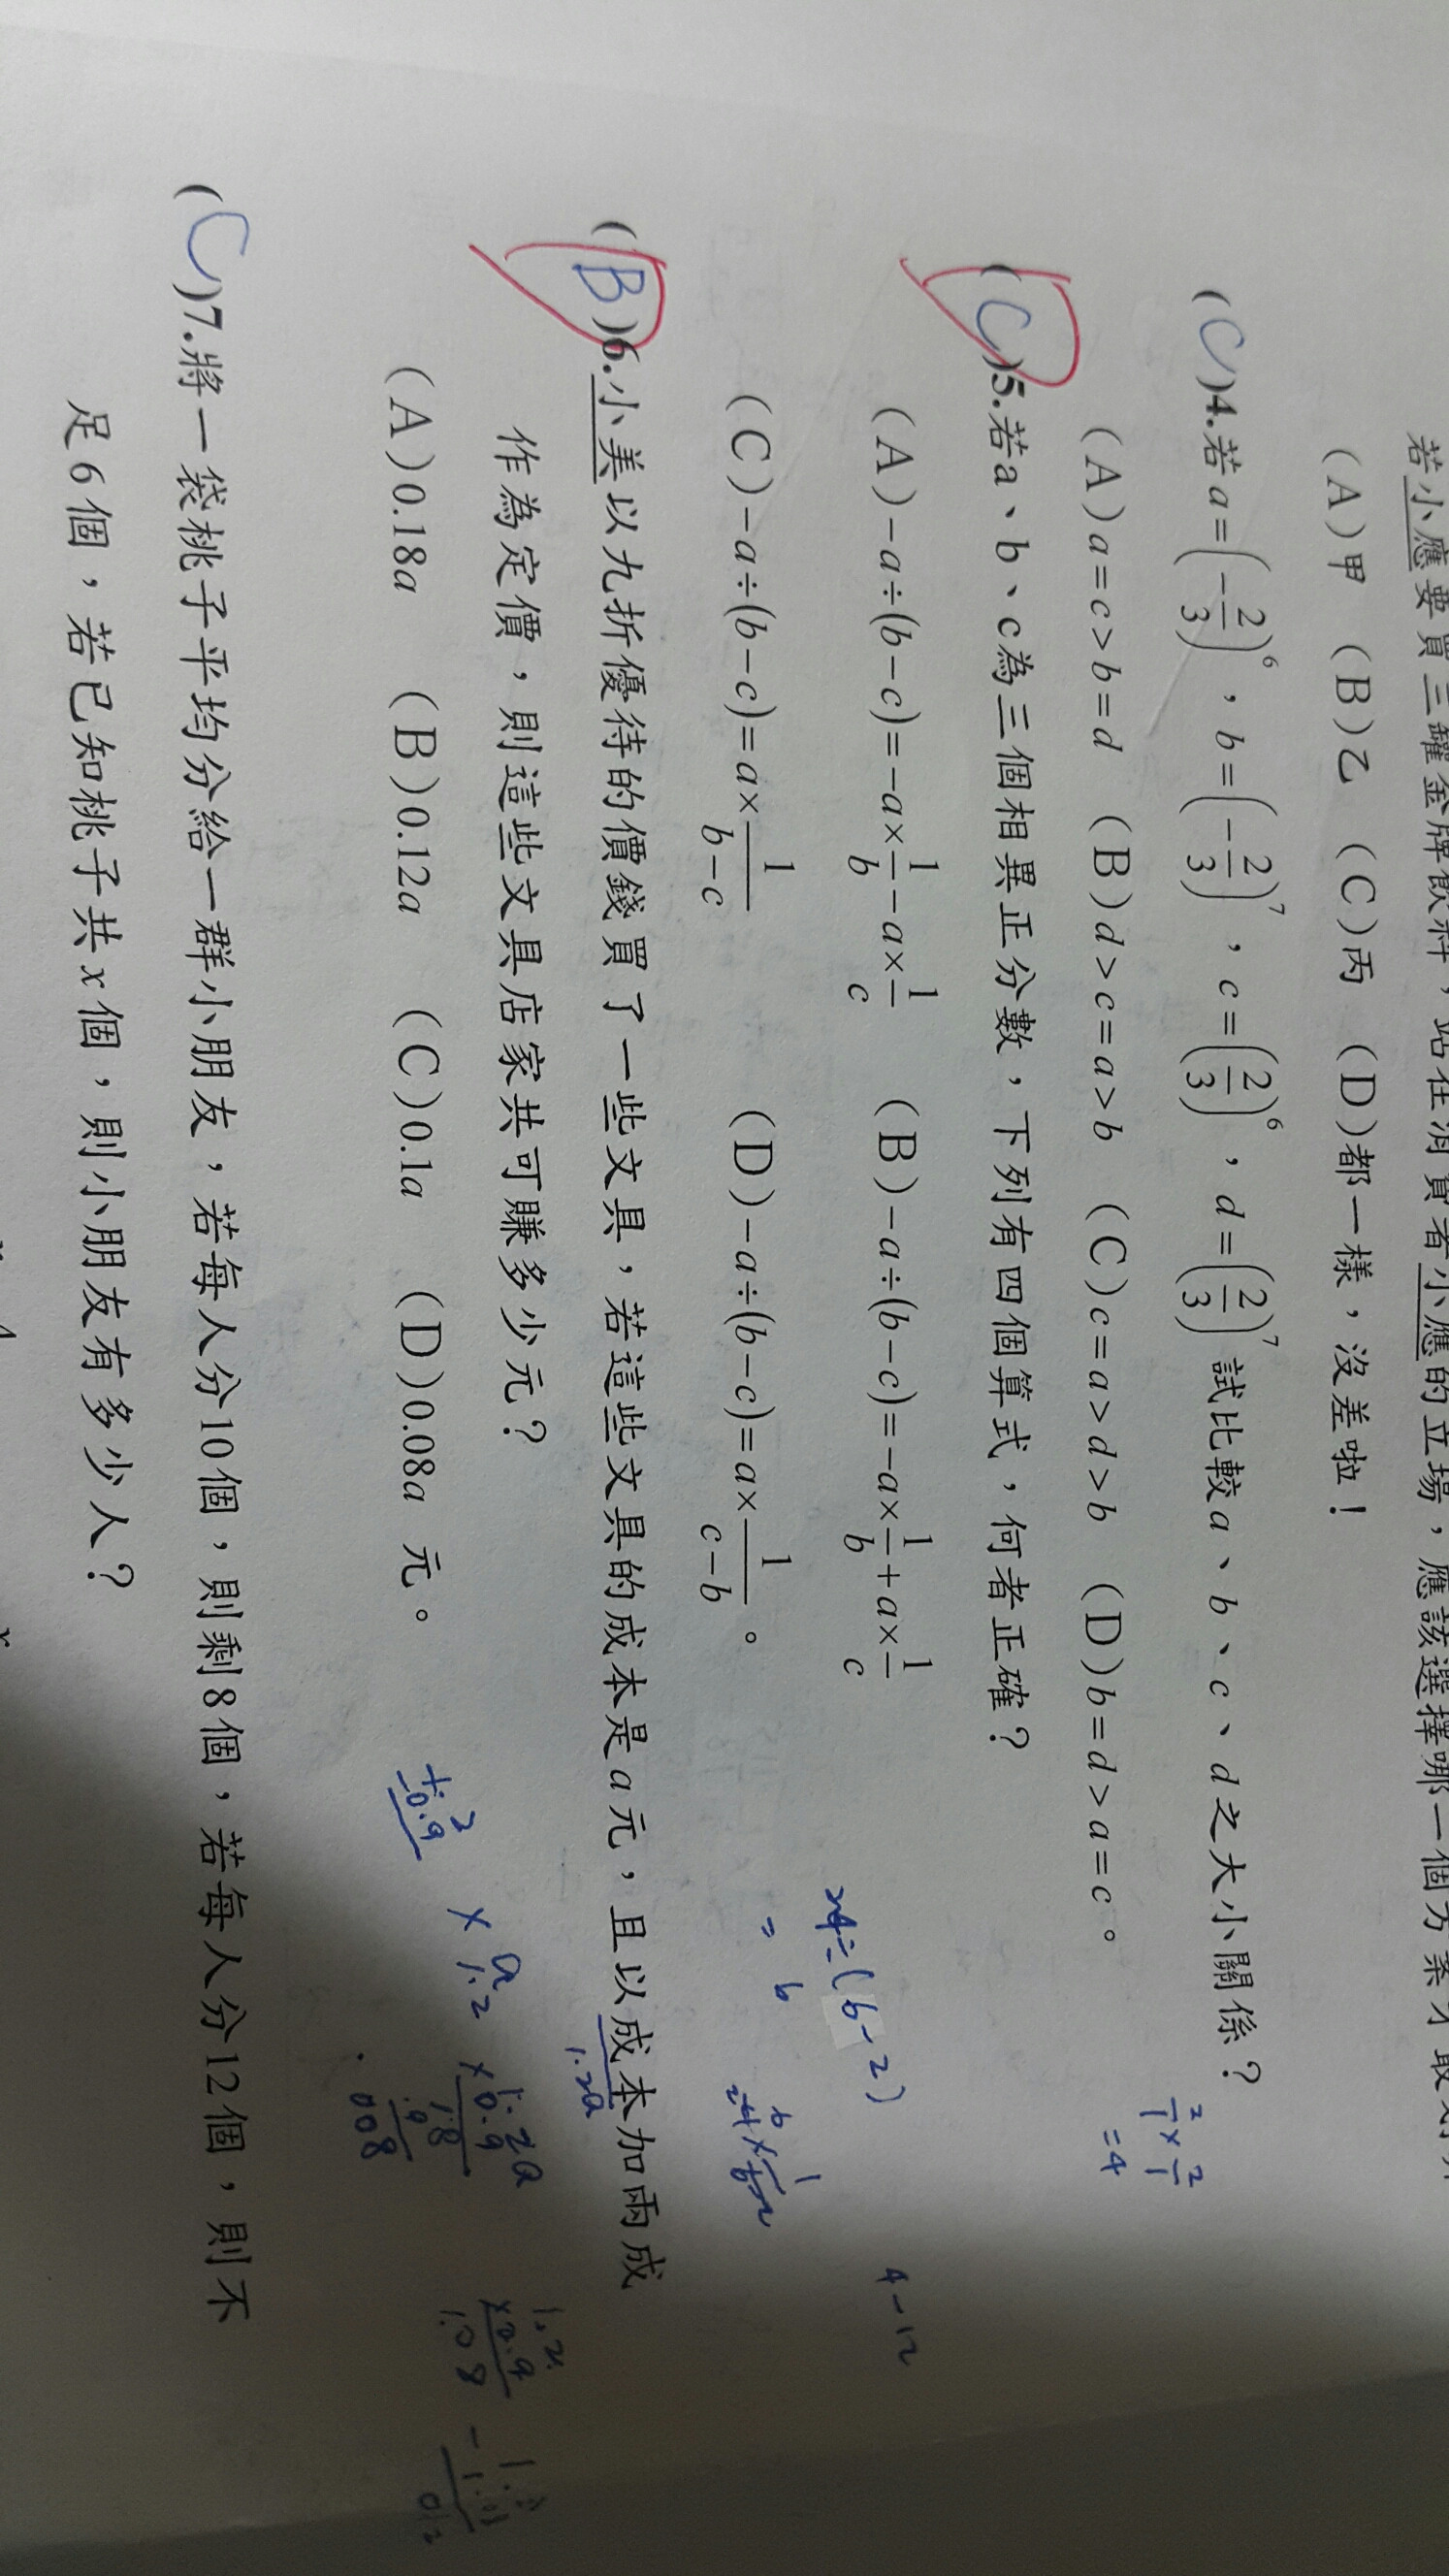 若小應要買三罐金牌飲料，站在消費者小應的立場，應該選擇哪一個方案才最
(A)甲 (B)乙 (C)丙 (D)都一樣，沒差啦！
(C)4.若a=(-2/3)^6，b=(-2/3)^7，c=(2/3)^6，d=(2/3)^7 試比較a、b、c、d之大小關係？
2/1×2/1
=4
(A)a=c>b=d (B)d>c=a>b (C)c=a>d>b (D)b=d>a=c。
(C)5.若a、b、c為三個相異正分數，下列有四個算式，何者正確？
(A)-a÷(b-c)=-a×1/b-a×1/c (B)-a÷(b-c)=-a×1/b+a×1/c
4-12
(C)-a÷(b-c)=a×1/(b-c) (D)-a÷(b-c)=a×1/(c-b)。
(B)6.小美以九折優待的價錢買了一些文具，若這些文具的成本是a元，且以成本加兩成
1.2a
作為定價，則這些文具店家共可賺多少元？
(A)0.18a (B)0.12a (C)0.1a (D)0.08a 元。
a
×1.2
1.2a
×0.9
1.08
1.2
×0.9
1.08
(C)7.將一袋桃子平均分給一群小朋友，若每人分10個，則剩8個，若每人分12個，則不
足6個，若已知桃子共x個，則小朋友有多少人？